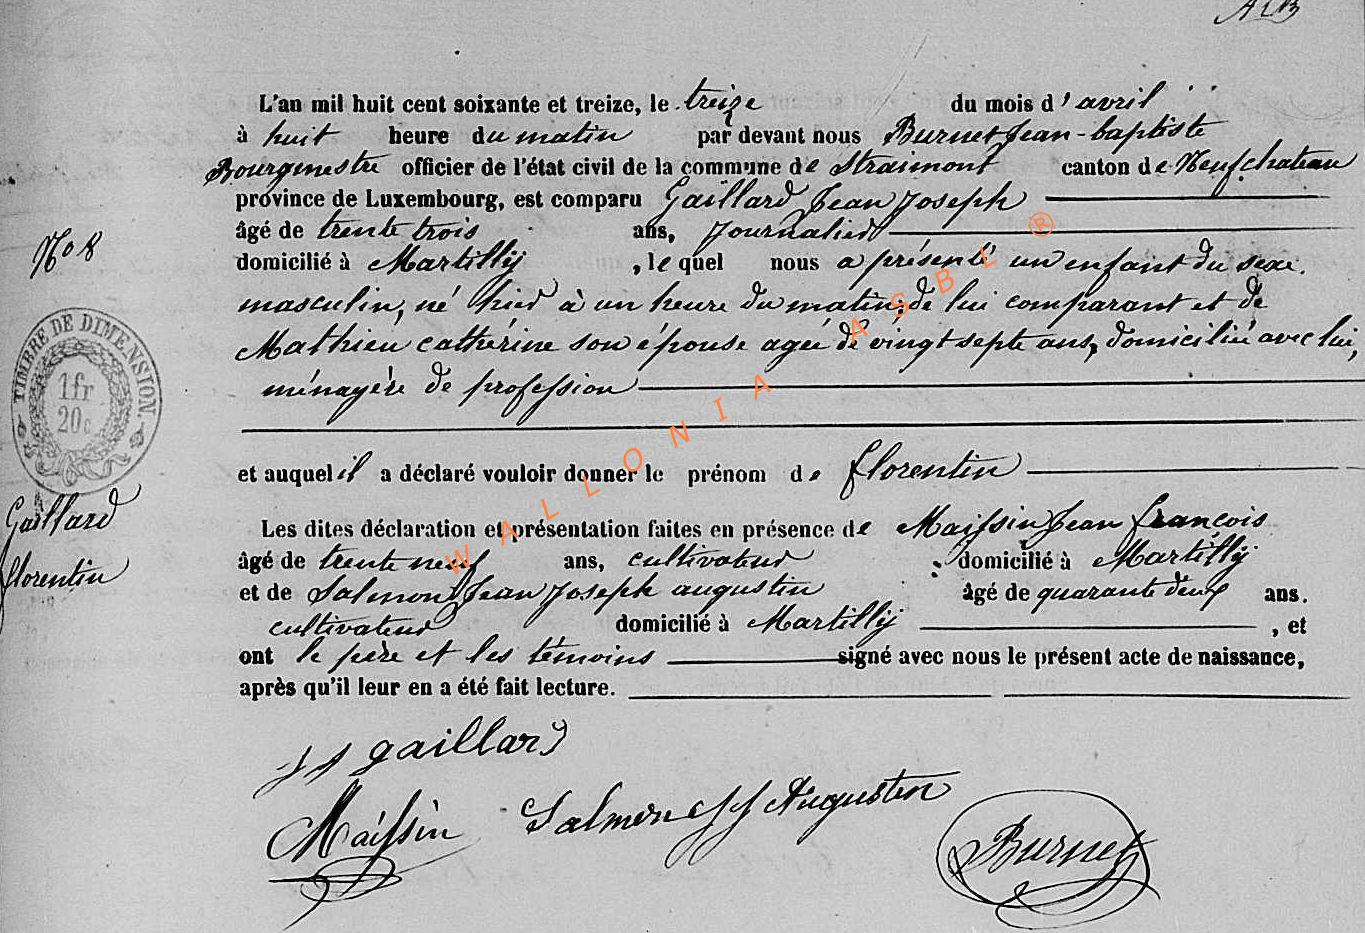 L'an mil huit cent soixante et treize, le treize du mois d'avril
à huit heure du matin par devant nous Burnet Jean-baptiste
Bourgmestre officier de l'état civil de la commune de Straimont canton de Neufchateau
province de Luxembourg, est comparu Gaillard Jean Joseph
âgé de trente trois ans, journalier
No 8
domicilié à Martilly, le quel nous a présenté un enfant du sexe
masculin, né hier à un heure du matin, de lui comparant et de
Mathieu cathérine son épouse agée de vingt septe ans, domiciliée avec lui,
ménagère de profession
TIMBRE DE DIMENSION.
1fr
20c
et auquel il a déclaré vouloir donner le prénom de florentin
Gaillard
florentin
Les dites déclaration et présentation faites en présence de Maissin Jean françois
âgé de trente neuf ans, cultivateur domicilié à Martilly
et de Salmon Jean Joseph augustin âgé de quarante deux ans.
cultivateur domicilié à Martilly, et
ont le père et les témoins signé avec nous le présent acte de naissance,
après qu'il leur en a été fait lecture.
gaillard
Maissin Salmon JJ Augustin
Burnet
WALLONIA ASBL ®